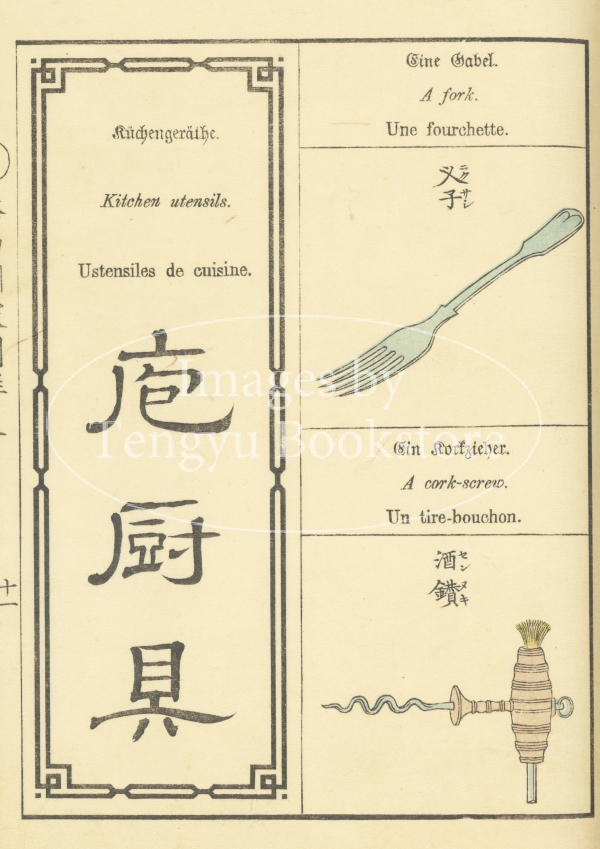 Küchengeräthe.
Kitchen utensils.
Ustensiles de cuisine.
庖厨具
Eine Gabel.
A fork.
Une fourchette.
乂子
ニクサシ
Ein Korkzieher.
A cork-screw.
Un tire-bouchon.
酒鑽
センヌキ
十一
Images by
Tengyu Bookstore